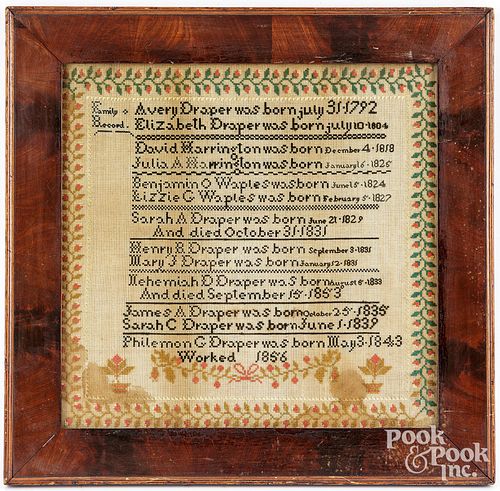 Family Record.
Avery Draper was born july 31 1792
Elizabeth Draper was born july 10 1804
David Harrington was born December 4 1818
Julia A Harrington was born January 16 1826
Benjamin O Waples was born June 15 1824
Lizzie G Waples was born February 5 1827
Sarah A Draper was born June 21 1829
And died October 31 1831
Henry R Draper was born September 3 1831
Mary J Draper was born January 12 1831
Nehemiah D Draper was born August 6 1833
And died September 15 1853
James A Draper was born October 25 1835
Sarah C Draper was born June 1 1839
Philemon G Draper was born May 3 1843
Worked 1856
Pook & Pook Inc.